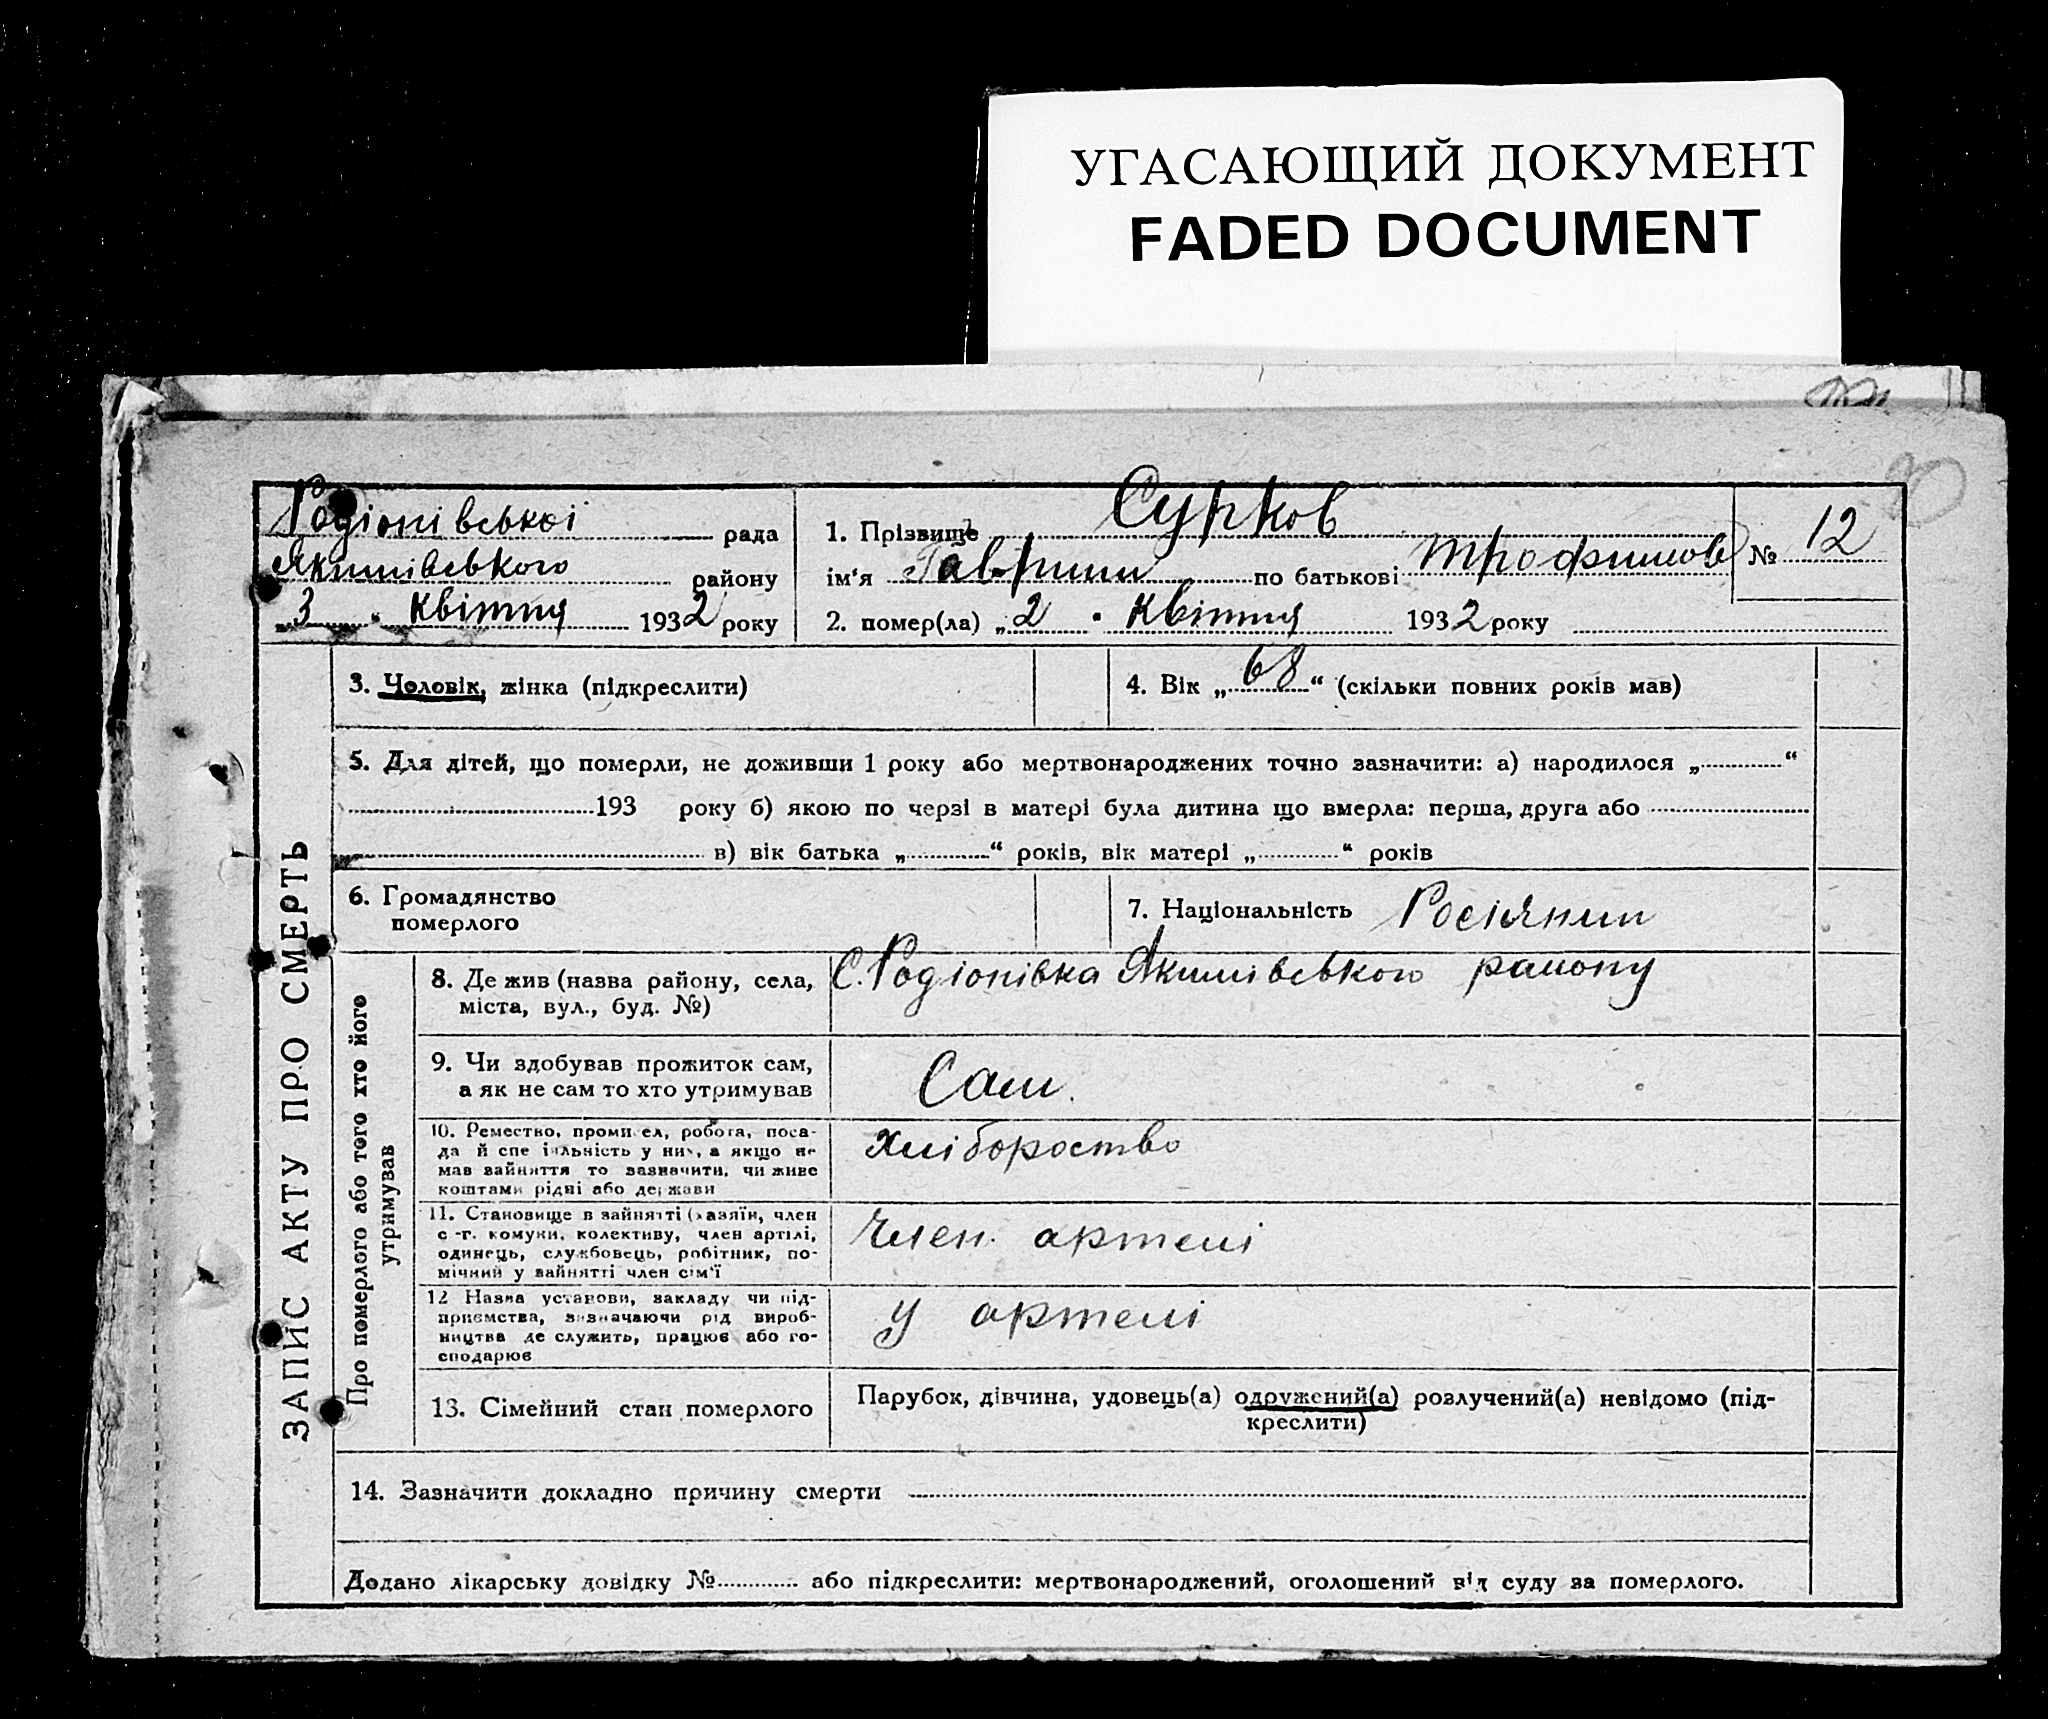 УГАСАЮЩИЙ ДОКУМЕНТ
FADED DOCUMENT
ЗАПИС АКТУ ПРО СМЕРТЬ
Родіонівської рада
Якимівського району
„3“ квітня 1932 року
1. Прізвище Сурков
ім'я Гавриил по батькові Трофимов
№ 12
2. помер(ла) „2“ квітня 1932 року
3. Чоловік, жінка (підкреслити)
4. Вік „68“ (скільки повних років мав)
5. Для дітей, що померли, не доживши 1 року або мертвонароджених точно зазначити: а) народилося „ “
193 року б) якою по черзі в матері була дитина що вмерла: перша, друга або
в) вік батька „ “ років, вік матері „ “ років
6. Громадянство
померлого
7. Національність Росіянин
Про померлого або того хто його
утримував
8. Де жив (назва району, села,
міста, вул., буд. №)
С. Родіонівка Якимівського району
9. Чи здобував прожиток сам,
а як не сам то хто утримував
Сам.
10. Ремество, промисел, робота, поса-
да й спеціяльність у них, а якщо не
мав зайняття то зазначити, чи живе
коштами рідні або держави
Хлібороство
11. Становище в зайнятті (хазяїн, член
с.-г. комуни, колективу, член артілі,
одинець, службовець, робітник, по-
мічний у зайнятті член сім'ї
Член. артелі
12 Назва установи, закладу чи під-
приємства, зазначаючи рід вироб-
ництва де служить, працює або го-
сподарює
У артелі
13. Сімейний стан померлого
Парубок, дівчина, удовець(а) одружений(а) розлучений(а) невідомо (під-
креслити)
14. Зазначити докладно причину смерти
Додано лікарську довідку № або підкреслити: мертвонароджений, оголошений від суду за померлого.